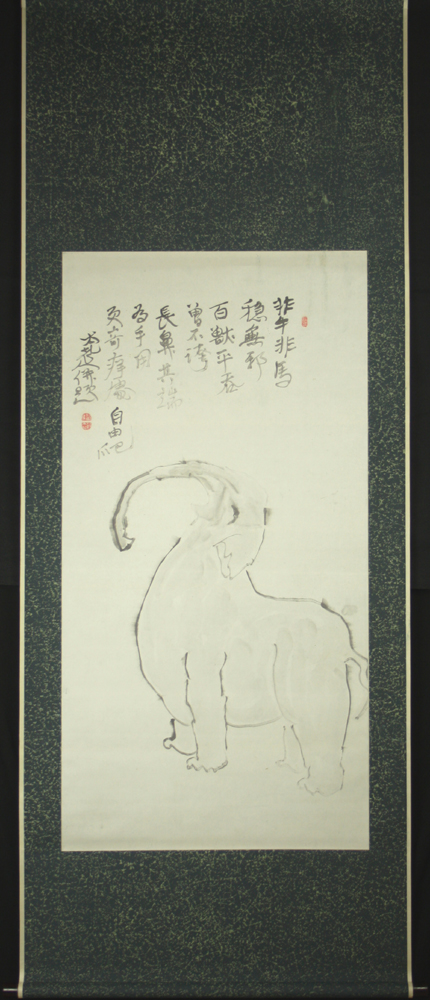 非牛非馬
穏無邪
百獣平
曽不誇
長鼻其端
為手用
更奇痒處
自由爬